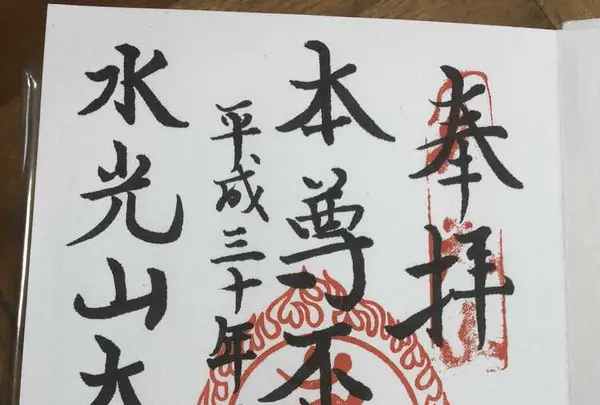 奉拝
本尊不
平成三十年
水光山大